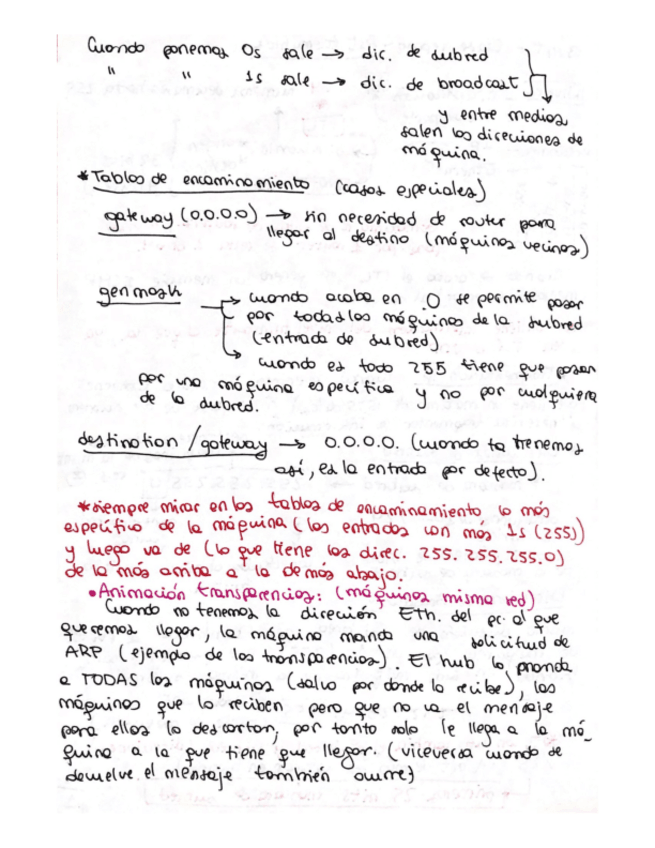 Cuando ponemos 0s sale → dic. de subred
"    "    1s sale → dic. de broadcast
y entre medios
salen las direcciones de
máquina.
* Tablas de encaminamiento (casos especiales)
gateway (0.0.0.0) → sin necesidad de router para
llegar al destino (máquinas vecinas)
genmask → cuando acaba en .0 se permite pasar
por todas las máquinas de la subred
(entrada de subred)
→ cuando es todo 255 tiene que pasar
por una máquina específica y no por cualquiera
de la subred.
destination / gateway → 0.0.0.0. (cuando la tenemos
así, es la entrada por defecto).
* siempre mirar en las tablas de encaminamiento lo más
específico de la máquina (las entradas con más 1s (255))
y luego va de (lo que tiene las direc. 255.255.255.0)
de la más arriba a la de más abajo.
• Animación transparencias: (máquinas misma red)
Cuando no tenemos la dirección Eth. del pc al que
queremos llegar, la máquina manda una solicitud de
ARP (ejemplo de las transparencias). El hub lo manda
a TODAS las máquinas (salvo por donde lo recibe), las
máquinas que lo reciben pero que no va el mensaje
para ellas lo descartan, por tanto solo le llega a la má-
quina a la que tiene que llegar. (viceversa cuando se
devuelve el mensaje también ocurre)